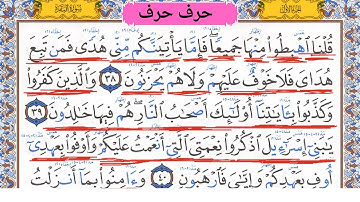 حرف حرف
قُلْنَا ٱهْبِطُوا۟ مِنْهَا جَمِيعًا ۖ فَإِمَّا يَأْتِيَنَّكُم مِّنِّى هُدًى فَمَن تَبِعَ
هُدَاىَ فَلَا خَوْفٌ عَلَيْهِمْ وَلَا هُمْ يَحْزَنُونَ ٣٨ وَٱلَّذِينَ كَفَرُوا۟
وَكَذَّبُوا۟ بِـَٔايَٰتِنَآ أُو۟لَٰٓئِكَ أَصْحَٰبُ ٱلنَّارِ ۖ هُمْ فِيهَا خَٰلِدُونَ ٣٩
يَٰبَنِىٓ إِسْرَٰٓءِيلَ ٱذْكُرُوا۟ نِعْمَتِىَ ٱلَّتِىٓ أَنْعَمْتُ عَلَيْكُمْ وَأَوْفُوا۟ بِعَهْدِىٓ
أُوفِ بِعَهْدِكُمْ وَإِيَّٰىَ فَٱرْهَبُونِ ٤٠ وَءَامِنُوا۟ بِمَآ أَنزَلْتُ